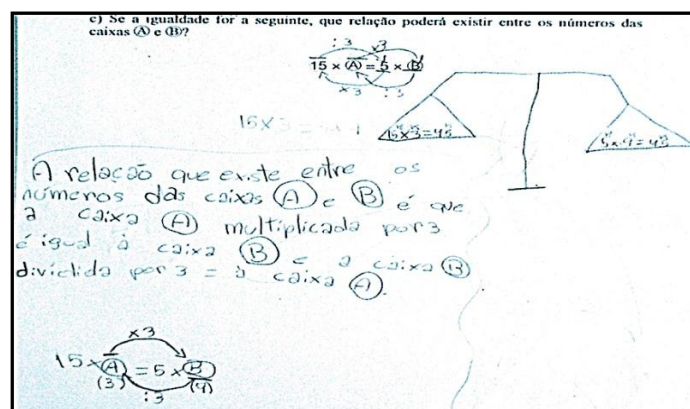 c) Se a igualdade for a seguinte, que relação poderá existir entre os números das
caixas Ⓐ e Ⓑ?
:3 ×3
15 × Ⓐ = 5 × Ⓑ
×3 :3
15 × 3 =
15×3=45
5×9=45
A relação que existe entre os
números das caixas Ⓐ e Ⓑ é que
a caixa Ⓐ multiplicada por 3
é igual à caixa Ⓑ e a caixa Ⓑ
dividida por 3 = à caixa Ⓐ.
×3
15 × Ⓐ = 5 × Ⓑ
(3)
:3